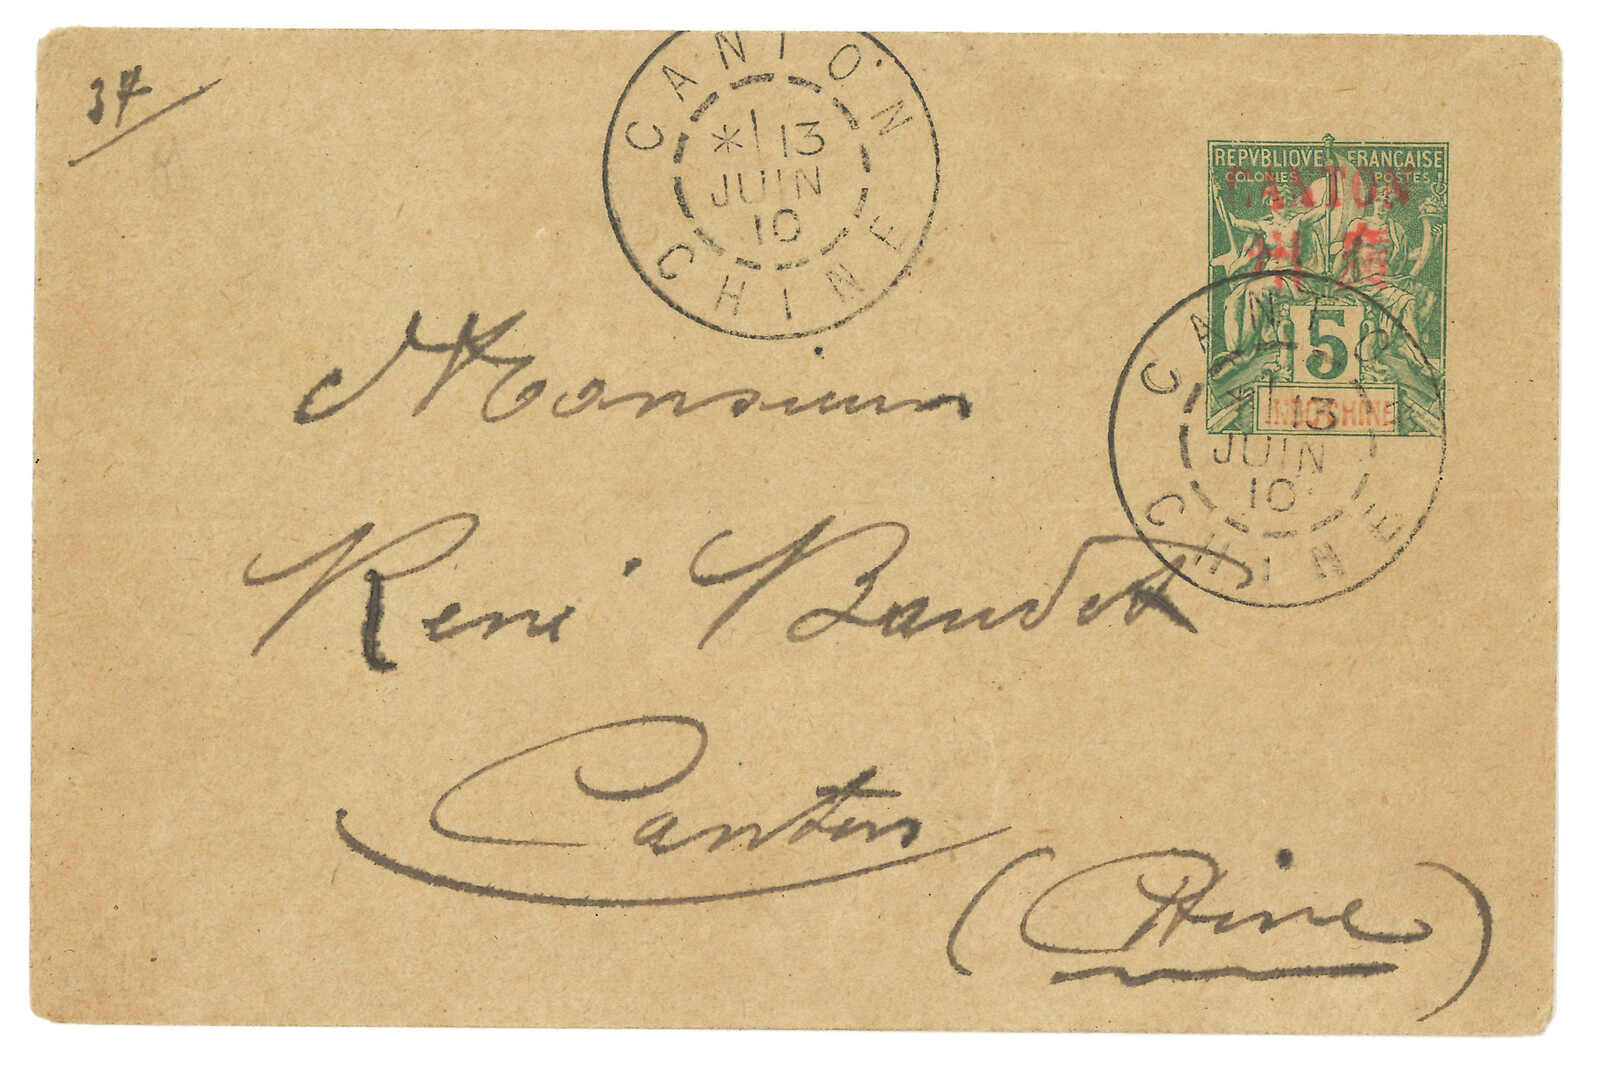 37
CANTON
* 13
JUIN
10
CHINE
REPVBLIQVE FRANÇAISE
COLONIES POSTES
CANTON
州廣
5
INDO-CHINE
CANTON
13
JUIN
10
CHINE
Monsieur
René Baudet
Canton
(Chine)